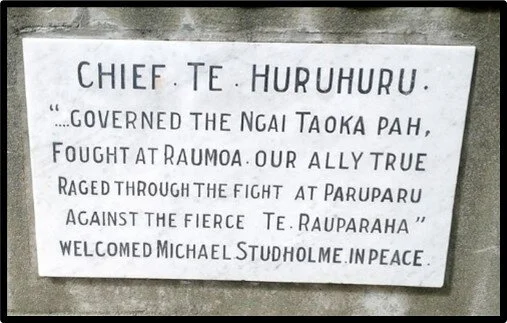 CHIEF. TE. HURUHURU.
"....GOVERNED THE NGAI TAOKA PAH,
FOUGHT AT RAUMOA. OUR ALLY TRUE
RAGED THROUGH THE FIGHT AT PARUPARU
AGAINST THE FIERCE TE. RAUPARAHA"
WELCOMED MICHAEL STUDHOLME. IN PEACE.